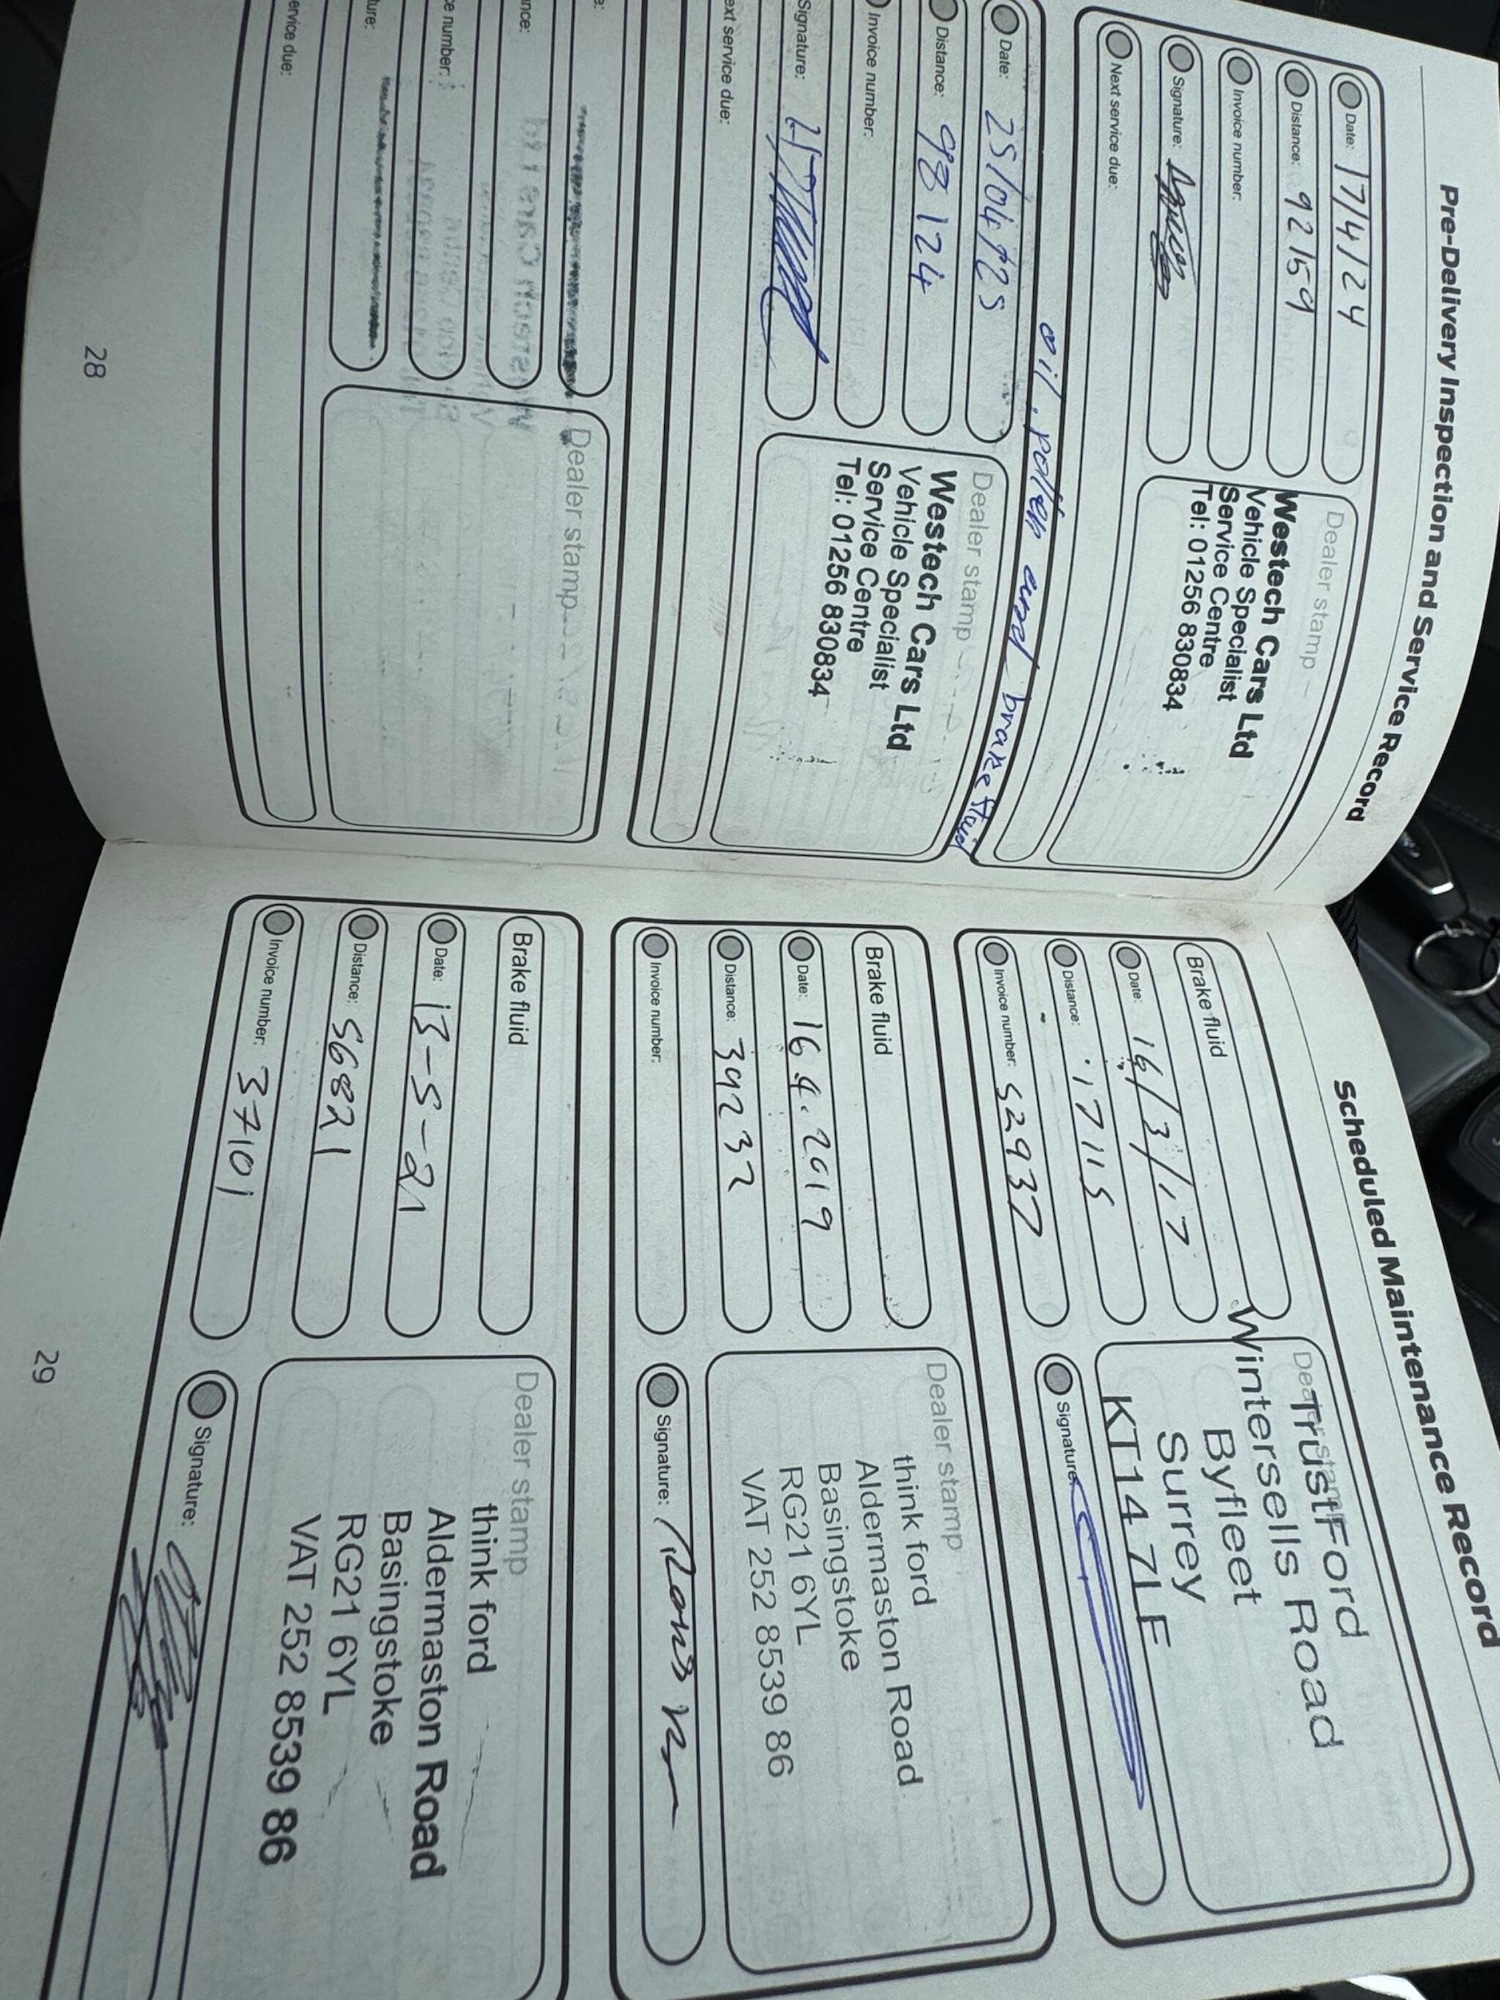 Pre-Delivery Inspection and Service Record
Date: 17/4/24
Distance: 92159
Invoice number:
Signature:
Next service due:
Dealer stamp
Westech Cars Ltd
Vehicle Specialist
Service Centre
Tel: 01256 830834
oil, pollen and brake fluid
Date: 25/04/25
Distance: 98124
Invoice number:
Signature:
ext service due:
Dealer stamp
Westech Cars Ltd
Vehicle Specialist
Service Centre
Tel: 01256 830834
e:
nce:
ce number:
ture:
ervice due:
Dealer stamp
28
Scheduled Maintenance Record
Brake fluid
Date: 16/3/17
Distance: 17115
Invoice number: 52937
Dealer stamp
TrustFord
Wintersells Road
Byfleet
Surrey
KT14 7LF
Signature:
Brake fluid
Date: 16.4.2019
Distance: 39232
Invoice number:
Dealer stamp
think ford
Aldermaston Road
Basingstoke
RG21 6YL
VAT 252 8539 86
Signature:
Brake fluid
Date: 13-5-21
Distance: 56821
Invoice number: 37101
Dealer stamp
think ford
Aldermaston Road
Basingstoke
RG21 6YL
VAT 252 8539 86
Signature:
29